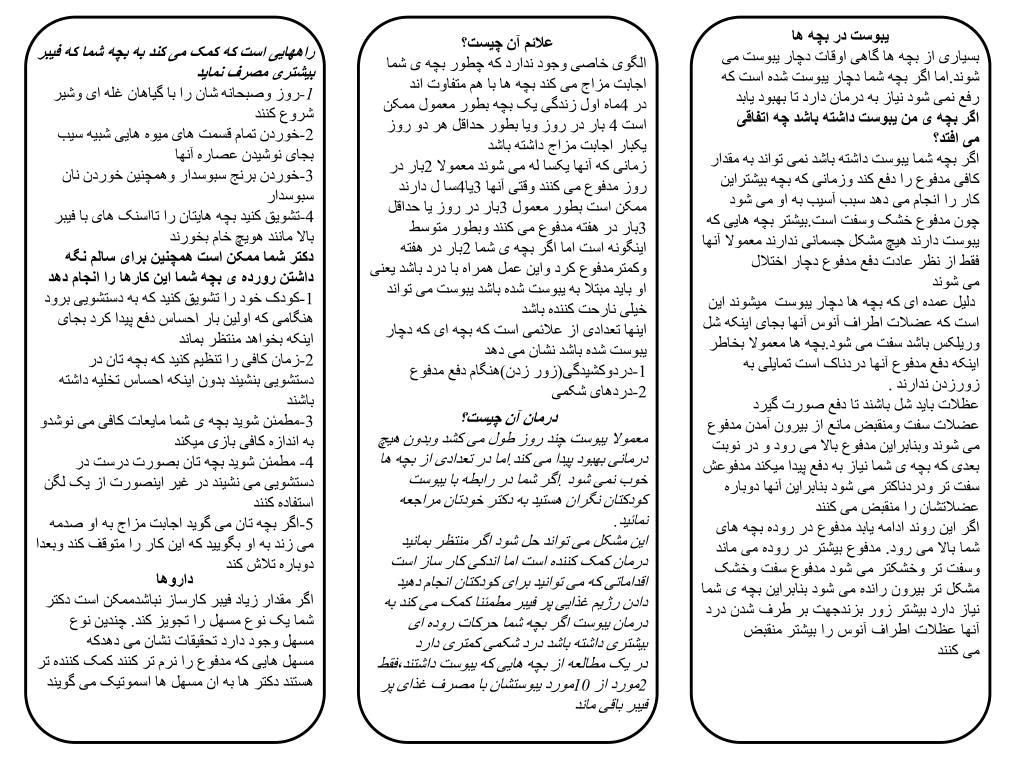 یبوست در بچه ها
بسیاری از بچه ها گاهی اوقات دچار یبوست می
شوند.اما اگر بچه شما دچار یبوست شده است که
رفع نمی شود نیاز به درمان دارد تا بهبود یابد
اگر بچه ی من یبوست داشته باشد چه اتفاقی
می افتد؟
اگر بچه شما یبوست داشته باشد نمی تواند به مقدار
کافی مدفوع را دفع کند وزمانی که بچه بیشتراین
کار را انجام می دهد سبب آسیب به او می شود
چون مدفوع خشک وسفت است.بیشتر بچه هایی که
یبوست دارند هیچ مشکل جسمانی ندارند معمولا آنها
فقط از نظر عادت دفع مدفوع دچار اختلال
می شوند
دلیل عمده ای که بچه ها دچار یبوست میشوند این
است که عضلات اطراف آنوس آنها بجای اینکه شل
وریلکس باشد سفت می شود.بچه ها معمولا بخاطر
اینکه دفع مدفوع آنها دردناک است تمایلی به
زورزدن ندارند .
عظلات باید شل باشند تا دفع صورت گیرد
عضلات سفت ومنقبض مانع از بیرون آمدن مدفوع
می شوند وبنابراین مدفوع بالا می رود و در نوبت
بعدی که بچه ی شما نیاز به دفع پیدا میکند مدفوعش
سفت تر ودردناکتر می شود بنابراین آنها دوباره
عضلاتشان را منقبض می کنند
اگر این روند ادامه یابد مدفوع در روده بچه های
شما بالا می رود. مدفوع بیشتر در روده می ماند
وسفت تر وخشکتر می شود مدفوع سفت وخشک
مشکل تر بیرون رانده می شود بنابراین بچه ی شما
نیاز دارد بیشتر زور بزندجهت بر طرف شدن درد
آنها عظلات اطراف آنوس را بیشتر منقبض
می کنند
علائم آن چیست؟
الگوی خاصی وجود ندارد که چطور بچه ی شما
اجابت مزاج می کند بچه ها با هم متفاوت اند
در 4ماه اول زندگی یک بچه بطور معمول ممکن
است 4 بار در روز ویا بطور حداقل هر دو روز
یکبار اجابت مزاج داشته باشد
زمانی که آنها یکسا له می شوند معمولا 2بار در
روز مدفوع می کنند وقتی آنها 3یا4سا ل دارند
ممکن است بطور معمول 3بار در روز یا حداقل
3بار در هفته مدفوع می کنند وبطور متوسط
اینگونه است اما اگر بچه ی شما 2بار در هفته
وکمترمدفوع کرد واین عمل همراه با درد باشد یعنی
او باید مبتلا به یبوست شده باشد یبوست می تواند
خیلی نارحت کننده باشد
اینها تعدادی از علائمی است که بچه ای که دچار
یبوست شده باشد نشان می دهد
1-دردوکشیدگی(زور زدن)هنگام دفع مدفوع
2-دردهای شکمی
درمان آن چیست؟
معمولا یبوست چند روز طول می کشد وبدون هیچ
درمانی بهبود پیدا می کند.اما در تعدادی از بچه ها
خوب نمی شود .اگر شما در رابطه با یبوست
کودکتان نگران هستید به دکتر خودتان مراجعه
نمائید .
این مشکل می تواند حل شود اگر منتظر بمانید
درمان کمک کننده است اما اندکی کار ساز است
اقداماتی که می توانید برای کودکتان انجام دهید
دادن رژیم غذایی پر فیبر مطمئنا کمک می کند به
درمان یبوست اگر بچه شما حرکات روده ای
بیشتری داشته باشد درد شکمی کمتری دارد
در یک مطالعه از بچه هایی که یبوست داشتند،فقط
2مورد از 10مورد یبوستشان با مصرف غذای پر
فیبر باقی ماند
راههایی است که کمک می کند به بچه شما که فیبر
بیشتری مصرف نماید
1-روز وصبحانه شان را با گیاهان غله ای وشیر
شروع کنند
2-خوردن تمام قسمت های میوه هایی شبیه سیب
بجای نوشیدن عصاره آنها
3-خوردن برنج سبوسدار وهمچنین خوردن نان
سبوسدار
4-تشویق کنید بچه هایتان را تااسنک های با فیبر
بالا مانند هویچ خام بخورند
دکتر شما ممکن است همچنین برای سالم نگه
داشتن رورده ی بچه شما این کارها را انجام دهد
1-کودک خود را تشویق کنید که به دستشویی برود
هنگامی که اولین بار احساس دفع پیدا کرد بجای
اینکه بخواهد منتظر بماند
2-زمان کافی را تنظیم کنید که بچه تان در
دستشویی بنشیند بدون اینکه احساس تخلیه داشته
باشند
3-مطمئن شوید بچه ی شما مایعات کافی می نوشدو
به اندازه کافی بازی میکند
4- مطمئن شوید بچه تان بصورت درست در
دستشویی می نشیند در غیر اینصورت از یک لگن
استفاده کنند
5-اگر بچه تان می گوید اجابت مزاج به او صدمه
می زند به او بگویید که این کار را متوقف کند وبعدا
دوباره تلاش کند
داروها
اگر مقدار زیاد فیبر کارساز نباشدممکن است دکتر
شما یک نوع مسهل را تجویز کند. چندین نوع
مسهل وجود دارد تحقیقات نشان می دهدکه
مسهل هایی که مدفوع را نرم تر کنند کمک کننده تر
هستند دکتر ها به ان مسهل ها اسموتیک می گویند